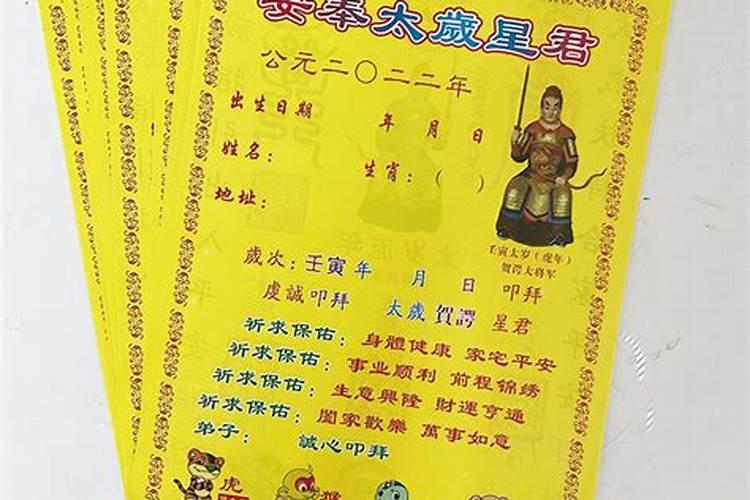 安奉太歲星君
公元二〇二二年
出生日期 年 月 日
姓名： 生肖：（ ）
地址：
壬寅太岁（虎年）
贺谔大将军
歲次：壬寅年 月 日 叩拜
虔誠叩拜 太歲賀諤 星君
祈求保佑： 身體健康 家宅平安
祈求保佑： 事业顺利 前程锦绣
祈求保佑： 生意興隆 財運亨通
祈求保佑： 闔家歡樂 萬事如意
弟子： 誠心叩拜
虎 猴